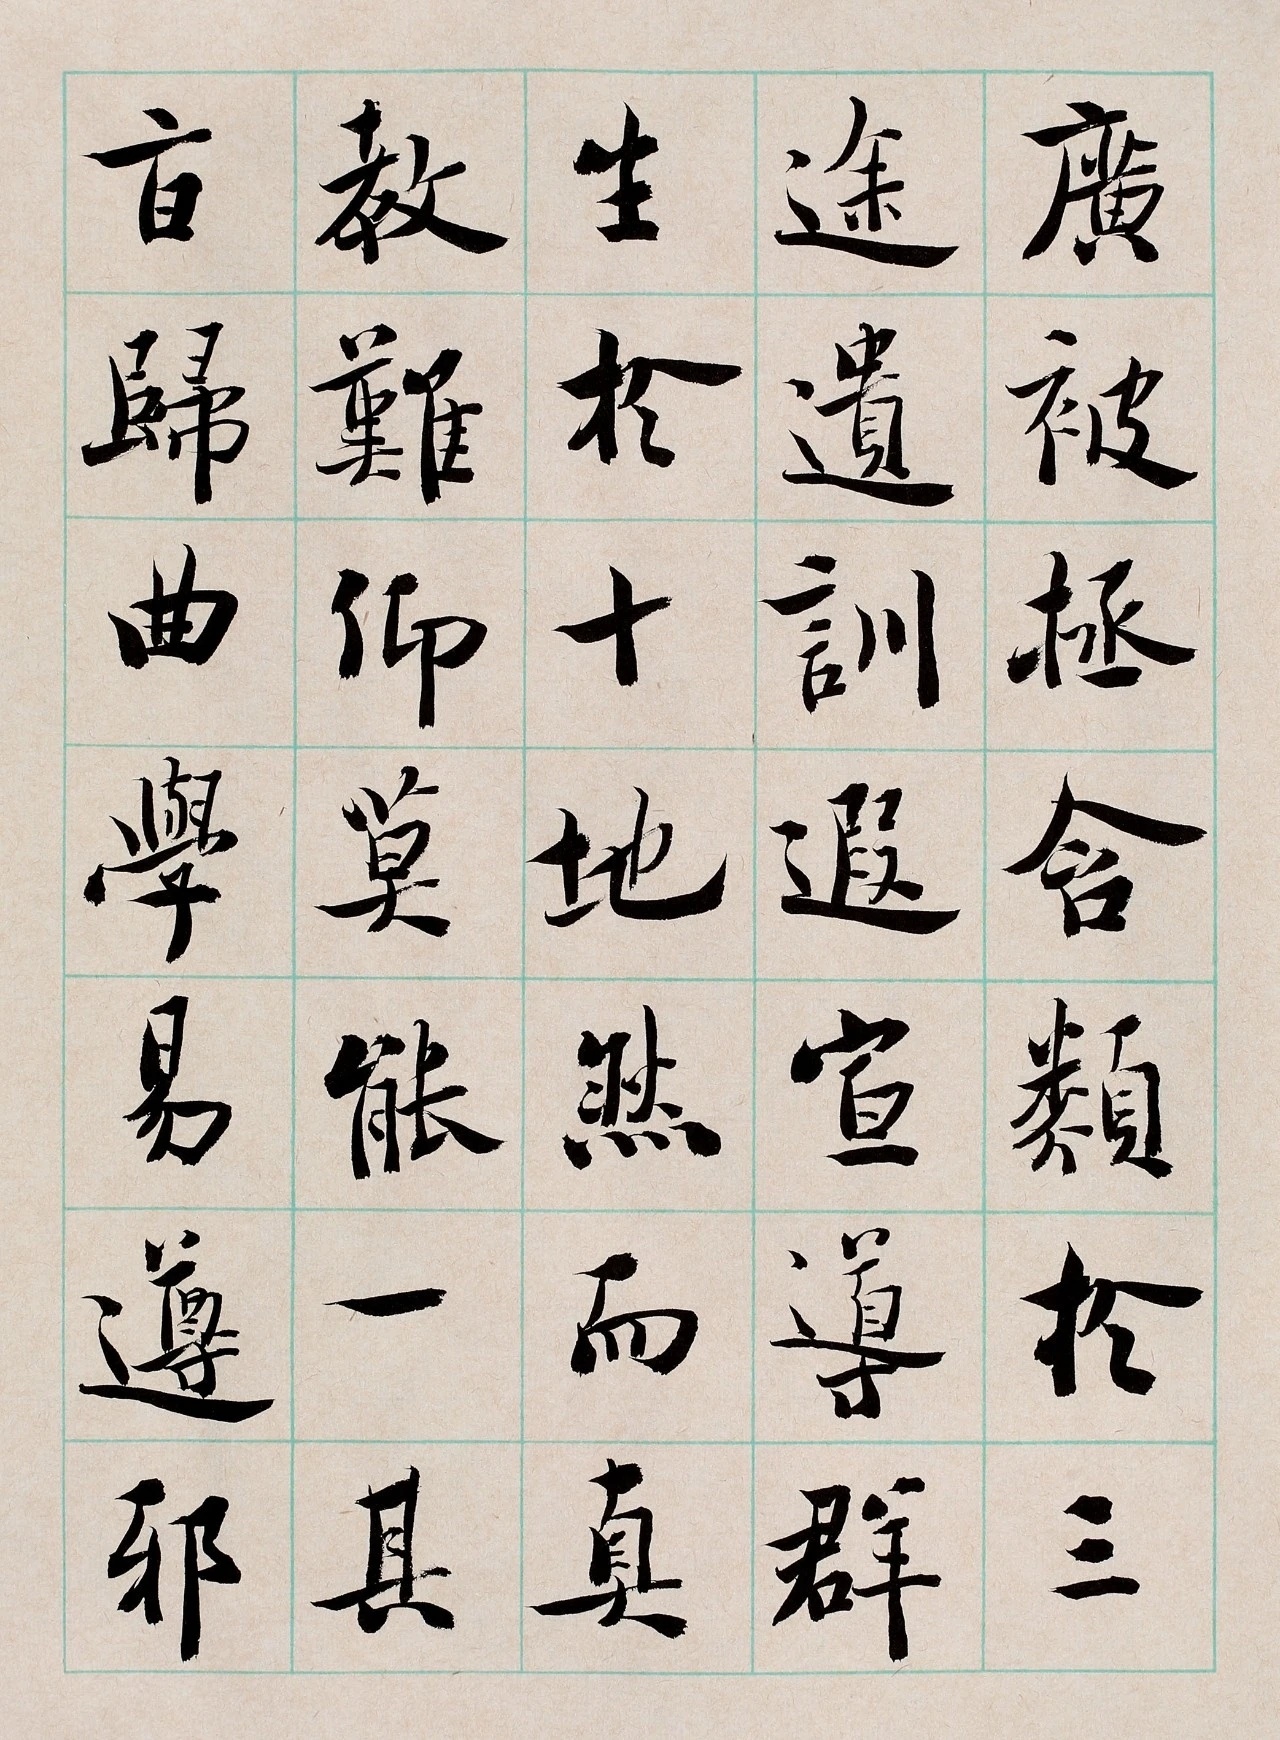 廣被拯含類於三
途遺訓遐宣導群
生於十地然而真
教難仰莫能一其
旨歸曲學易遵邪